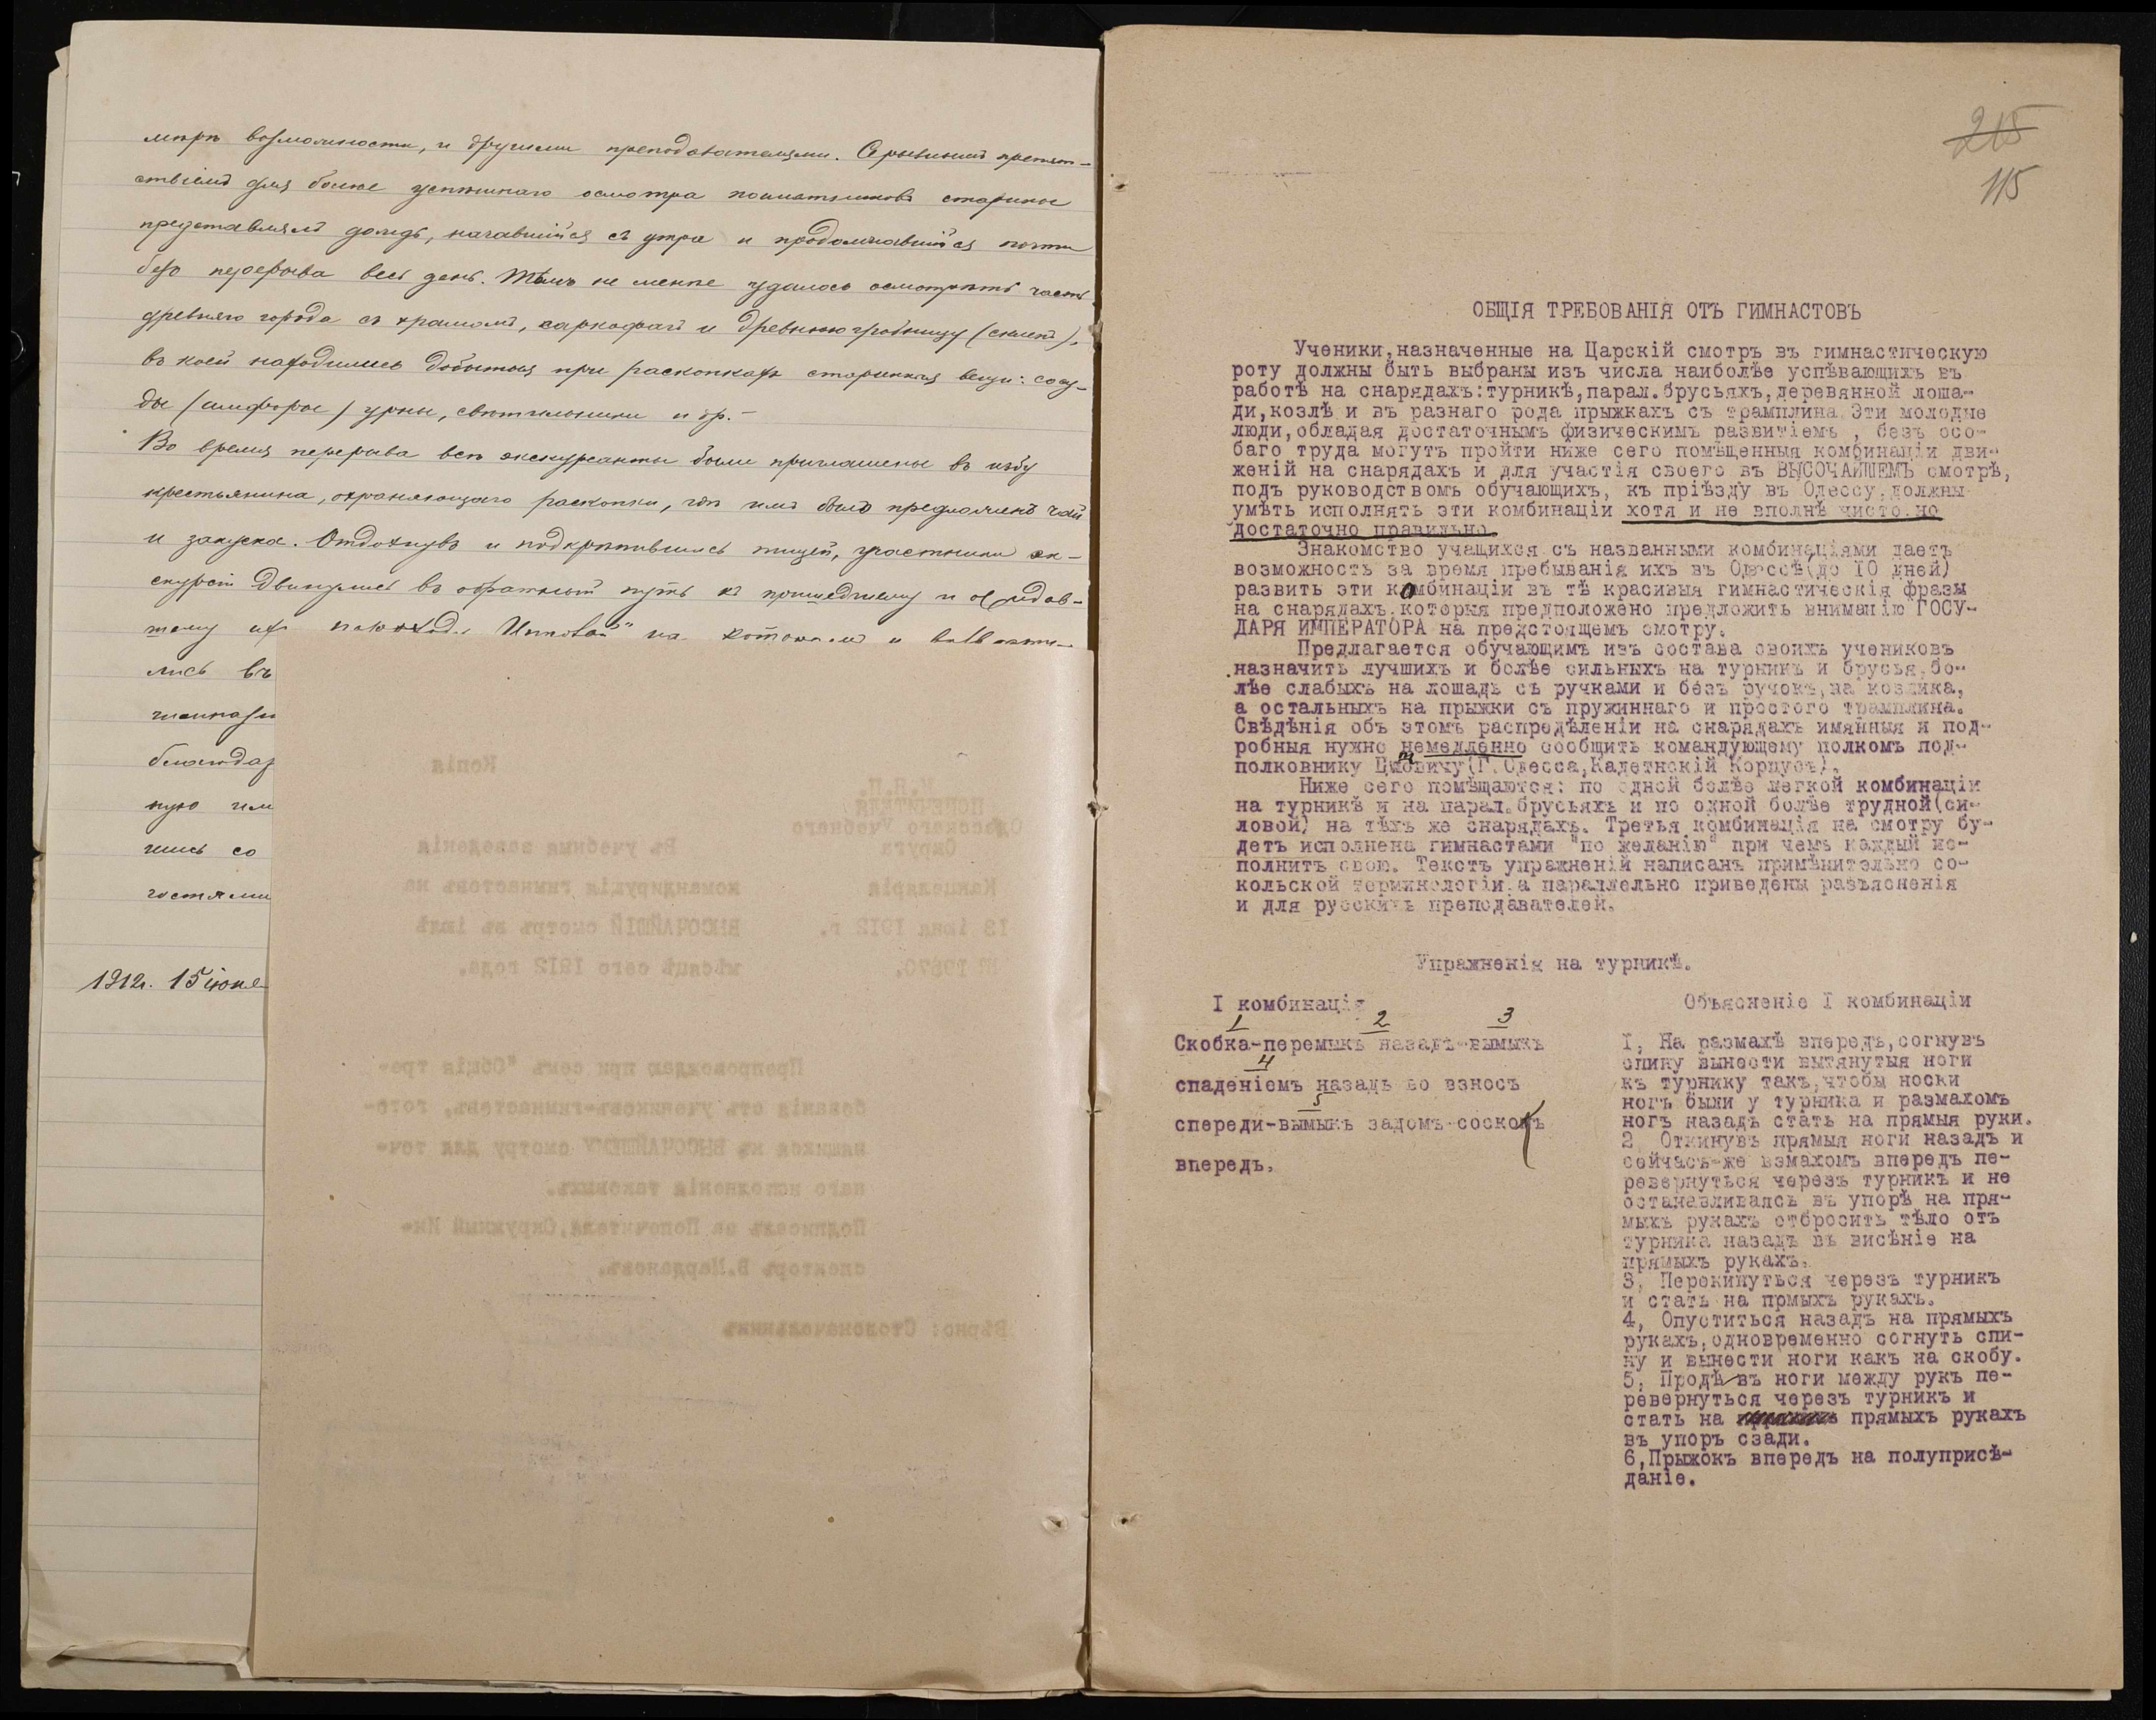 мѣрѣ возможности, и другими преподавателями. Серьезнымъ препят-
ствіемъ для болѣе успѣшнаго осмотра памятниковъ старины
представлялъ дождь, начавшійся съ утра и продолжавшійся почти
безъ перерыва весь день. Тѣмъ не менѣе удалось осмотрѣть часть
древняго города съ храмомъ, саркофагъ и древнюю гробницу (склепъ),
въ коей находились добытыя при раскопкахъ старинныя вещи: сосу-
ды (амфоры) урны, свѣтильники и др. –
Во время перерыва всѣ экскурсанты были приглашены въ избу
крестьянина, охраняющаго раскопки, гдѣ имъ былъ предложенъ чай
и закуска. Отдохнувъ и подкрѣпившись пищей, участники эк-
скурсіи двинулись въ обратный путь къ пришедшему и ожидав-
шему ихъ пароходу на которомъ и
лись въ
гимнази
благодар
ную гим
лись со
гостями
1912г. 15 іюня
Копія
М.Н.П.
ПОПЕЧИТЕЛЯ
Одесскаго Учебнаго
Округа
Въ учебныя заведенія
Канцелярія
командирующія гимнастовъ на
13 іюня 1912 г.
ВЫСОЧАЙШІЙ смотръ въ іюлѣ
№ 19870.
мѣсяцѣ сего 1912 года.
Препровождаю при семъ "Общія тре-
бованія отъ учениковъ-гимнастовъ, гото-
вящихся къ ВЫСОЧАЙШЕМУ смотру для точ-
наго исполненія таковыхъ.
Подписалъ за Попечителя, Окружный Ин-
спекторъ В.Марданов.
Вѣрно: Столоначальникъ
215
115
ОБЩІЯ ТРЕБОВАНІЯ ОТЪ ГИМНАСТОВЪ
Ученики,назначенные на Царскій смотръ въ гимнастическую
роту должны быть выбраны изъ числа наиболѣе успѣвающихъ въ
работѣ на снарядахъ:турникѣ,парал.брусьяхъ,деревянной лоша-
ди,козлѣ и въ разнаго рода прыжкахъ съ трамплина.Эти молодые
люди,обладая достаточнымъ физическимъ развитіемъ , безъ осо-
баго труда могутъ пройти ниже сего помѣщенныя комбинаціи дви-
женій на снарядахъ и для участія своего въ ВЫСОЧАЙШЕМЪ смотрѣ,
подъ руководствомъ обучающихъ, къ пріѣзду въ Одессу,должны
умѣть исполнять эти комбинаціи хотя и не вполнѣ чисто,но
достаточно правильно.
Знакомство учащихся съ названными комбинаціями даетъ
возможность за время пребыванія ихъ въ Одессѣ(до 10 дней)
развить эти комбинаціи въ тѣ красивыя гимнастическія фразы
на снарядахъ,которыя предположено предложить вниманію ГОСУ-
ДАРЯ ИМПЕРАТОРА на предстоящемъ смотру.
Предлагается обучающимъ изъ состава своихъ учениковъ
назначить лучшихъ и болѣе сильныхъ на турникъ и брусья,бо-
лѣе слабыхъ на лошадь съ ручками и безъ ручокъ,на козлика,
а остальныхъ на прыжки съ пружиннаго и простого трамплина.
Свѣдѣнія объ этомъ распредѣленіи на снарядахъ имянныя и под-
робныя нужно немедленно сообщить командующему полкомъ под-
полковнику (Г.Одесса,Кадетнскій Корпусъ).
Ниже сего помѣщаются: по одной болѣе легкой комбинаціи
на турникѣ и на парал.брусьяхъ и по одной болѣе трудной(си-
ловой) на тѣхъ же снарядахъ. Третья комбинація на смотру бу-
детъ исполнена гимнастами "по желанію" при чемъ каждый ис-
полнитъ свою. Текстъ упражненій написанъ примѣнительно со-
кольской терминологіи,а параллельно приведены разъясненія
и для русскихъ преподавателей.
Упражненія на турникѣ.
I комбинація
1 2 3
Скобка-перемыкъ назадъ-вымыкъ
4
спаденіемъ назадъ во взносъ
5
спереди-вымыкъ задомъ-соскокъ
впередъ.
Объясненіе I комбинаціи
I, На размахѣ впередъ,согнувъ
спину вынести вытянутыя ноги
къ турнику такъ,чтобы носки
ногъ были у турника и размахомъ
ногъ назадъ стать на прямыя руки.
2, Откинувъ прямыя ноги назадъ и
сейчасъ-же взмахомъ впередъ пе-
ревернуться черезъ турникъ и не
останавливаясь въ упорѣ на пря-
мыхъ рукахъ отбросить тѣло отъ
турника назадъ въ висѣніе на
прямыхъ рукахъ.
3, Перекинуться черезъ турникъ
и стать на прмыхъ рукахъ.
4, Опуститься назадъ на прямыхъ
рукахъ,одновременно согнуть спи-
ну и вынести ноги какъ на скобу.
5, Продѣвъ ноги между рукъ пе-
ревернуться черезъ турникъ и
стать на прямыхъ рукахъ
въ упоръ сзади.
6,Прыжокъ впередъ на полуприсѣ-
даніе.